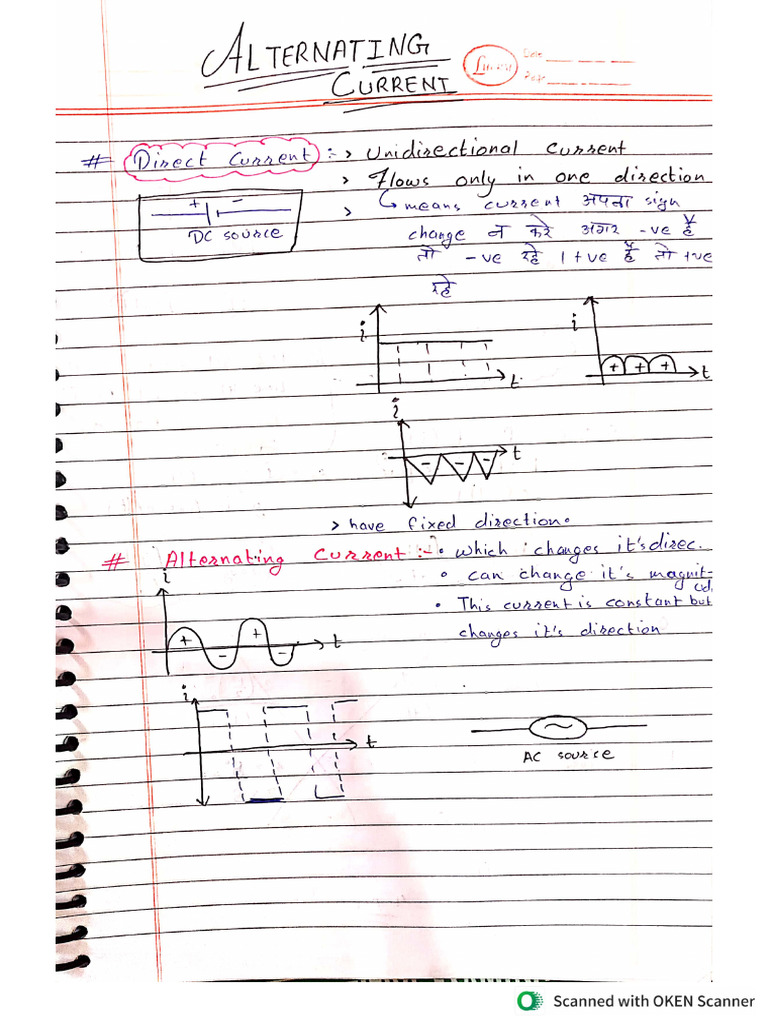 ALTERNATING
CURRENT
Date
Page
# Direct Current :- > Unidirectional Current
> Flows only in one direction
+ -
DC source
> means current अपना sign
change न करे अगर -ve है
तो -ve रहे । +ve है तो +ve
रहे
i
t
i
+ + +
t
i
- - -
t
> have fixed direction.
# Alternating Current :- • which changes it's direc.
• can change it's magnit-
ude
• This current is constant but
changes it's direction
i
+ - + -
t
i
t
~
AC source
Scanned with OKEN Scanner